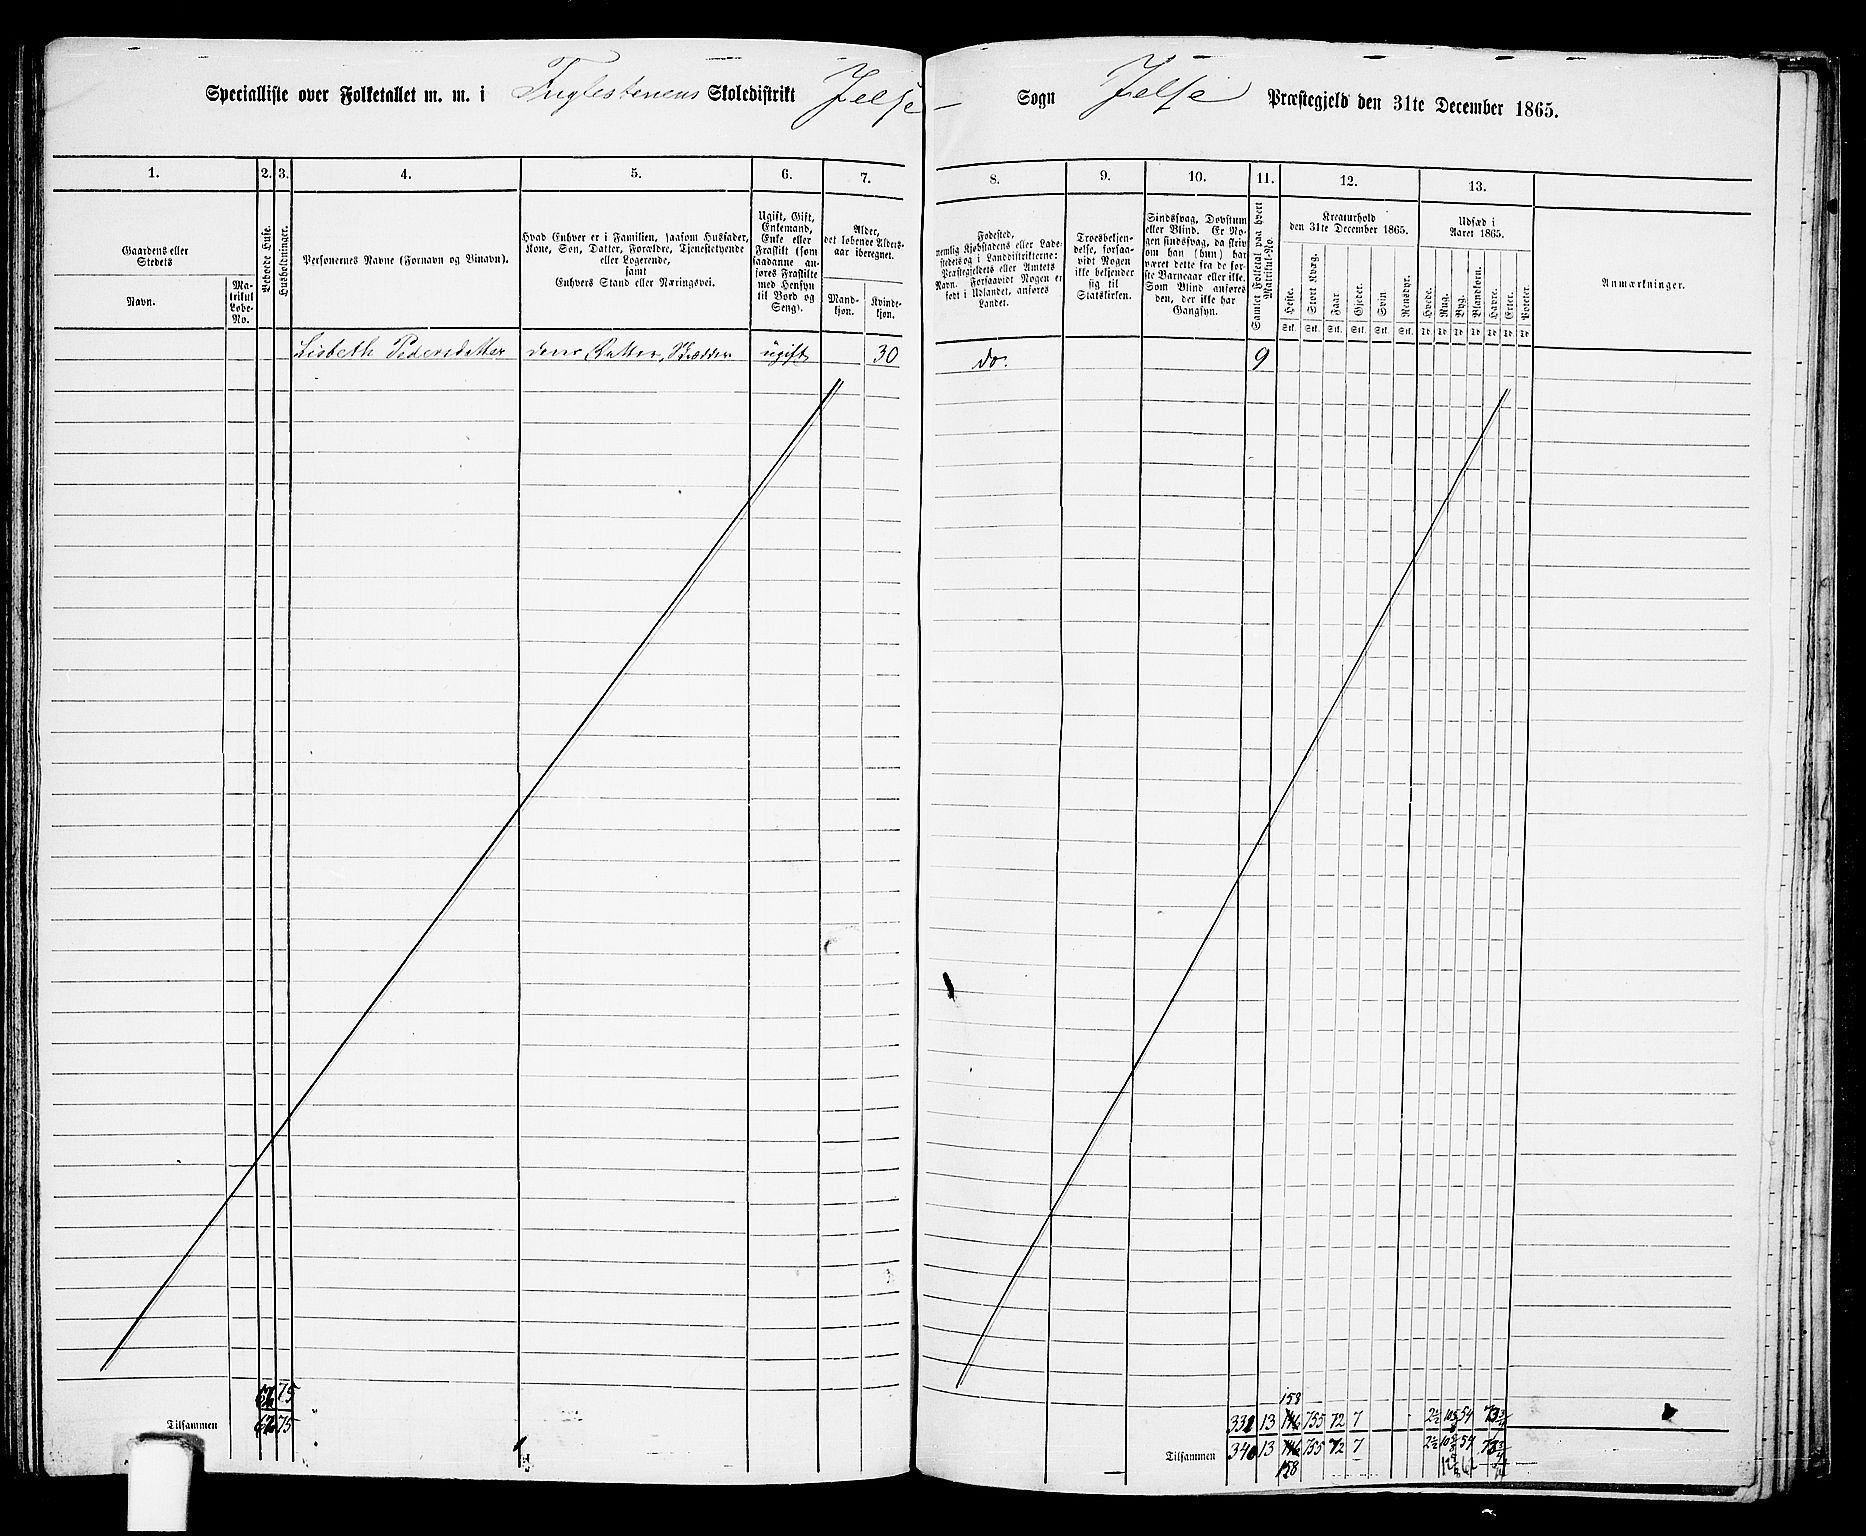 Specialliste over Folketallet m. m. i Fuglestenens Skoledistrikt Jelse Sogn Jelse Præstegjeld den 31te December 1865.
1. 2. 3. 4. 5. 6. 7. 8. 9. 10. 11. 12. 13.
Gaardens eller Stedets
Navn.
Matrikul Løbe-No.
Beboede Huse.
Husholdninger.
Personernes Navne (Fornavn og Tilnavn).
Hvad Enhver er i Familien, saasom Husfader, Kone, Søn, Datter, Forældre, Tjenestetyende eller Logerende,
samt
Enhvers Stand eller Næringsvei.
Ugift, Gift, Enkemand, Enke eller Fraskilt (som saadanne anføres Fraskilte med Hensyn til Bord og Seng).
Alder, det løbende Alders-aar iberegnet.
Mand-kjøn.
Kvinde-kjøn.
Fødested,
nemlig Kjøbstadens eller Ladestedets og i Landdistrikterne: Præstegjeldets eller Amtets Navn. Forsaavidt Nogen er født i Udlandet, anføres Landet.
Troesbekjendelse, forsaavidt Nogen ikke bekjender sig til Statskirken.
Sindssvag, Døvstum eller Blind. Er Nogen sindssvag, da skrives om han (hun) har været dette fra de første Barneaar eller ikke. Som Blind anføres den, der ikke har Gangsyn.
Samlet Folketal paa hvert Matrikul-No.
Kreaturhold
den 31te December 1865.
Heste. Stort Kvæg. Faar. Gjeder. Svin. Rensdyr.
Stk. Stk. Stk. Stk. Stk. Stk.
Udsæd i
Aaret 1865.
Hvede. Rug. Byg. Blandkorn. Havre. Erter. Poteter.
Td Td Td Td Td Td Td
Anmærkninger.
Lisbeth Pedersdatter deres Datter, ugift 30 do. 9
75 158
75 13 755 72 7 2½ 54 73¾
Tilsammen
Tilsammen 340 13 755 72 7 2½ 54 73¾
158